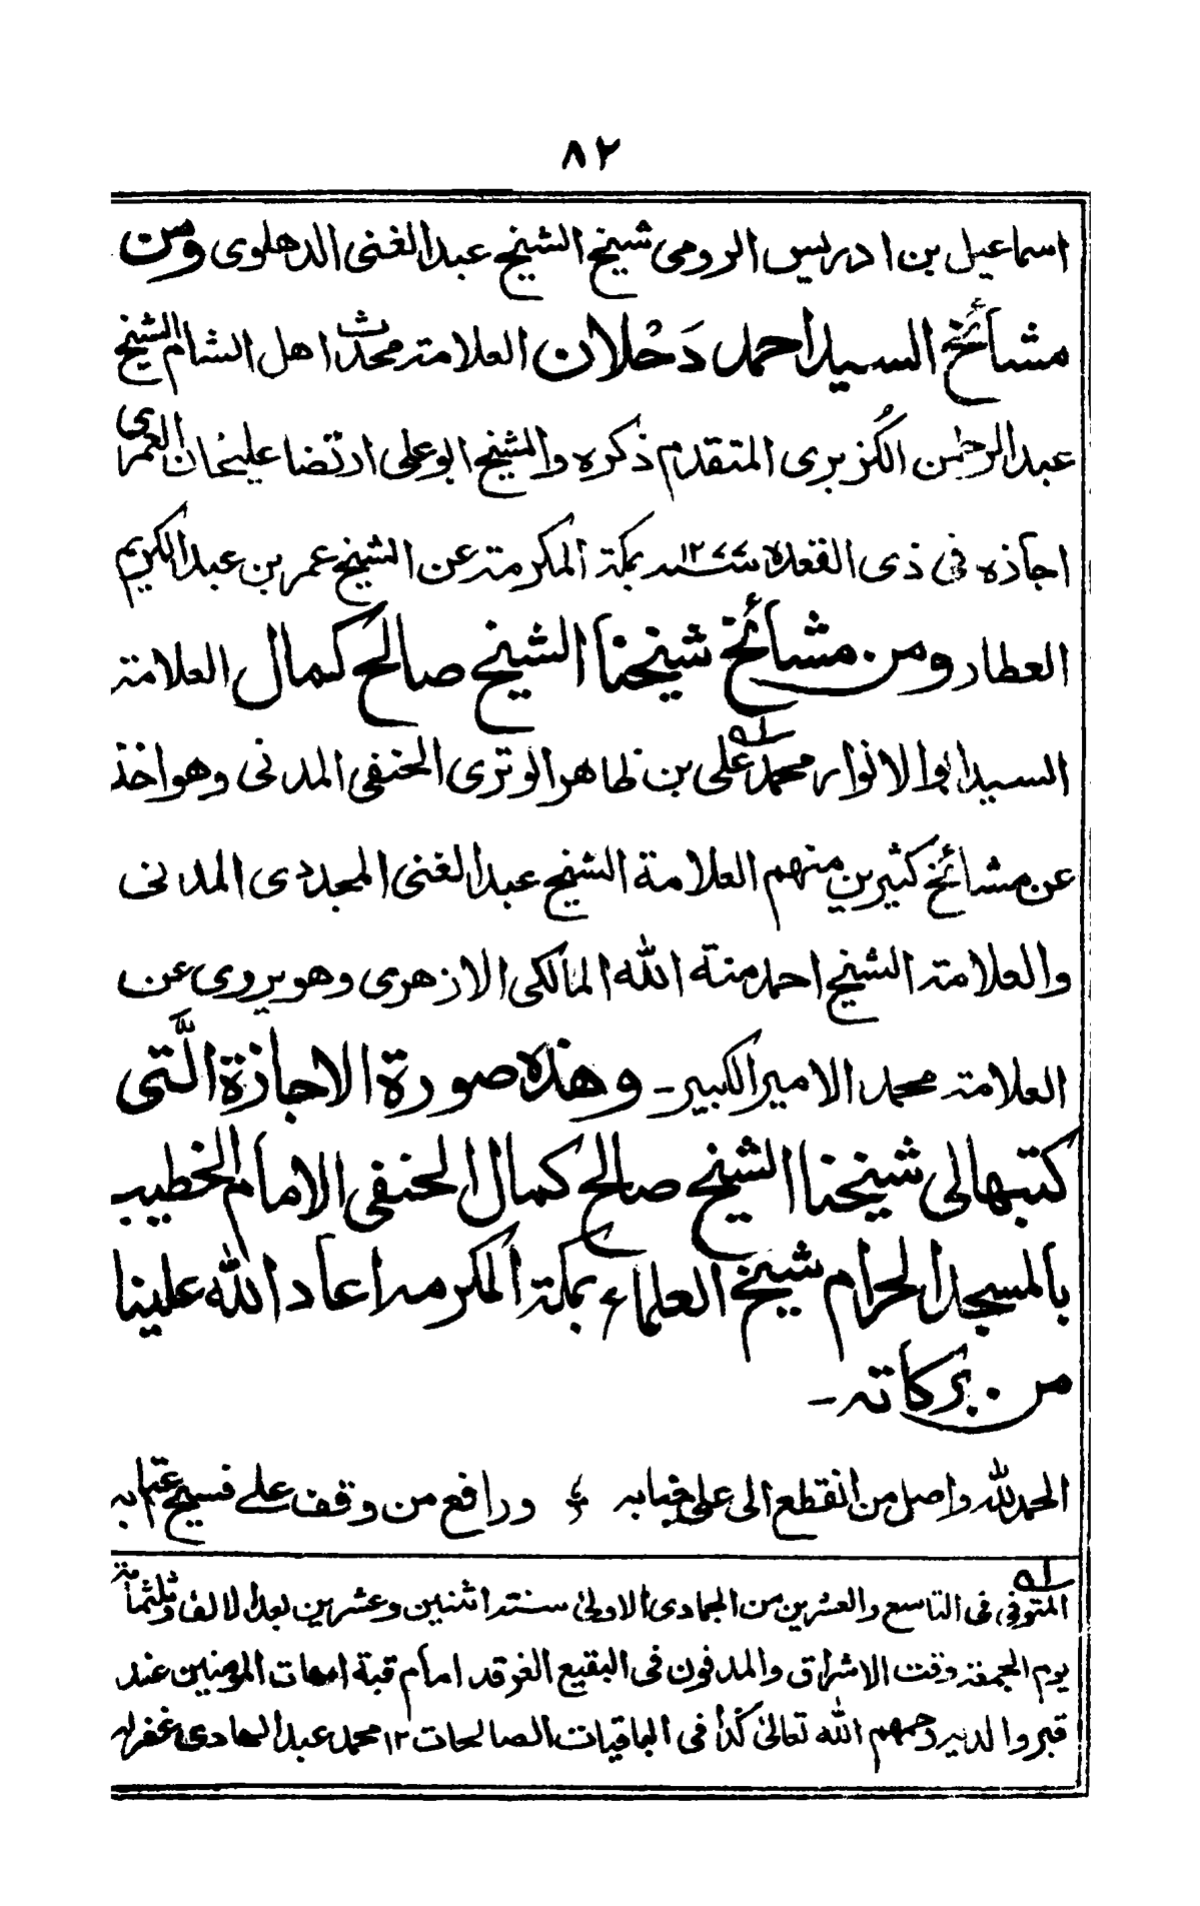 ٨٢
اسماعيل بن ادريس الرومى شيخ الشيخ عبدالغنى الدهلوى ومن
مشائخ السيد احمد دَحْلان العلامة محدث اهل الشام الشيخ
عبدالرحمن الكُزبرى المتقدم ذكره والشيخ ابوعلى ارتضا عليخان العمرى
اجازه فى ذى القعدة سنة ١٢٧٧ بمكة المكرمة عن الشيخ عمر بن عبدالكريم
العطار ومن مشائخ شيخنا الشيخ صالح كمال العلامة
السيد ابوالانوار محمد على بن ظاهر الوترى الحنفى المدنى وهو اخذ
عن مشائخ كثيرين منهم العلامة الشيخ عبدالغنى المجددى المدنى
والعلامة الشيخ احمد منة الله المالكى الازهرى وهو يروى عن
العلامة محمد الامير الكبير ـ وهذه صورة الاجازة الَّتى
كتبها لى شيخنا الشيخ صالح كمال الحنفى الامام الخطيب
بالمسجد الحرام شيخ العلماء بمكة المكرمة اعاد الله علينا
من بركاته ـ
الحمد لله واصل من انقطع الى على جنابه ؛ ورافع من وقف على فسيح عتابه
المتوفى فى التاسع والعشرين من الجمادى الاولىٰ سنة اثنين وعشرين بعد الالف وثلثمائة
يوم الجمعة وقت الاشراق والمدفون فى البقيع الغرقد امام قبة امهات المومنين عند
قبر والديه رحمهم الله تعالىٰ كذا فى الباقيات الصالحات ١٢ محمد عبدالهادى غفرله